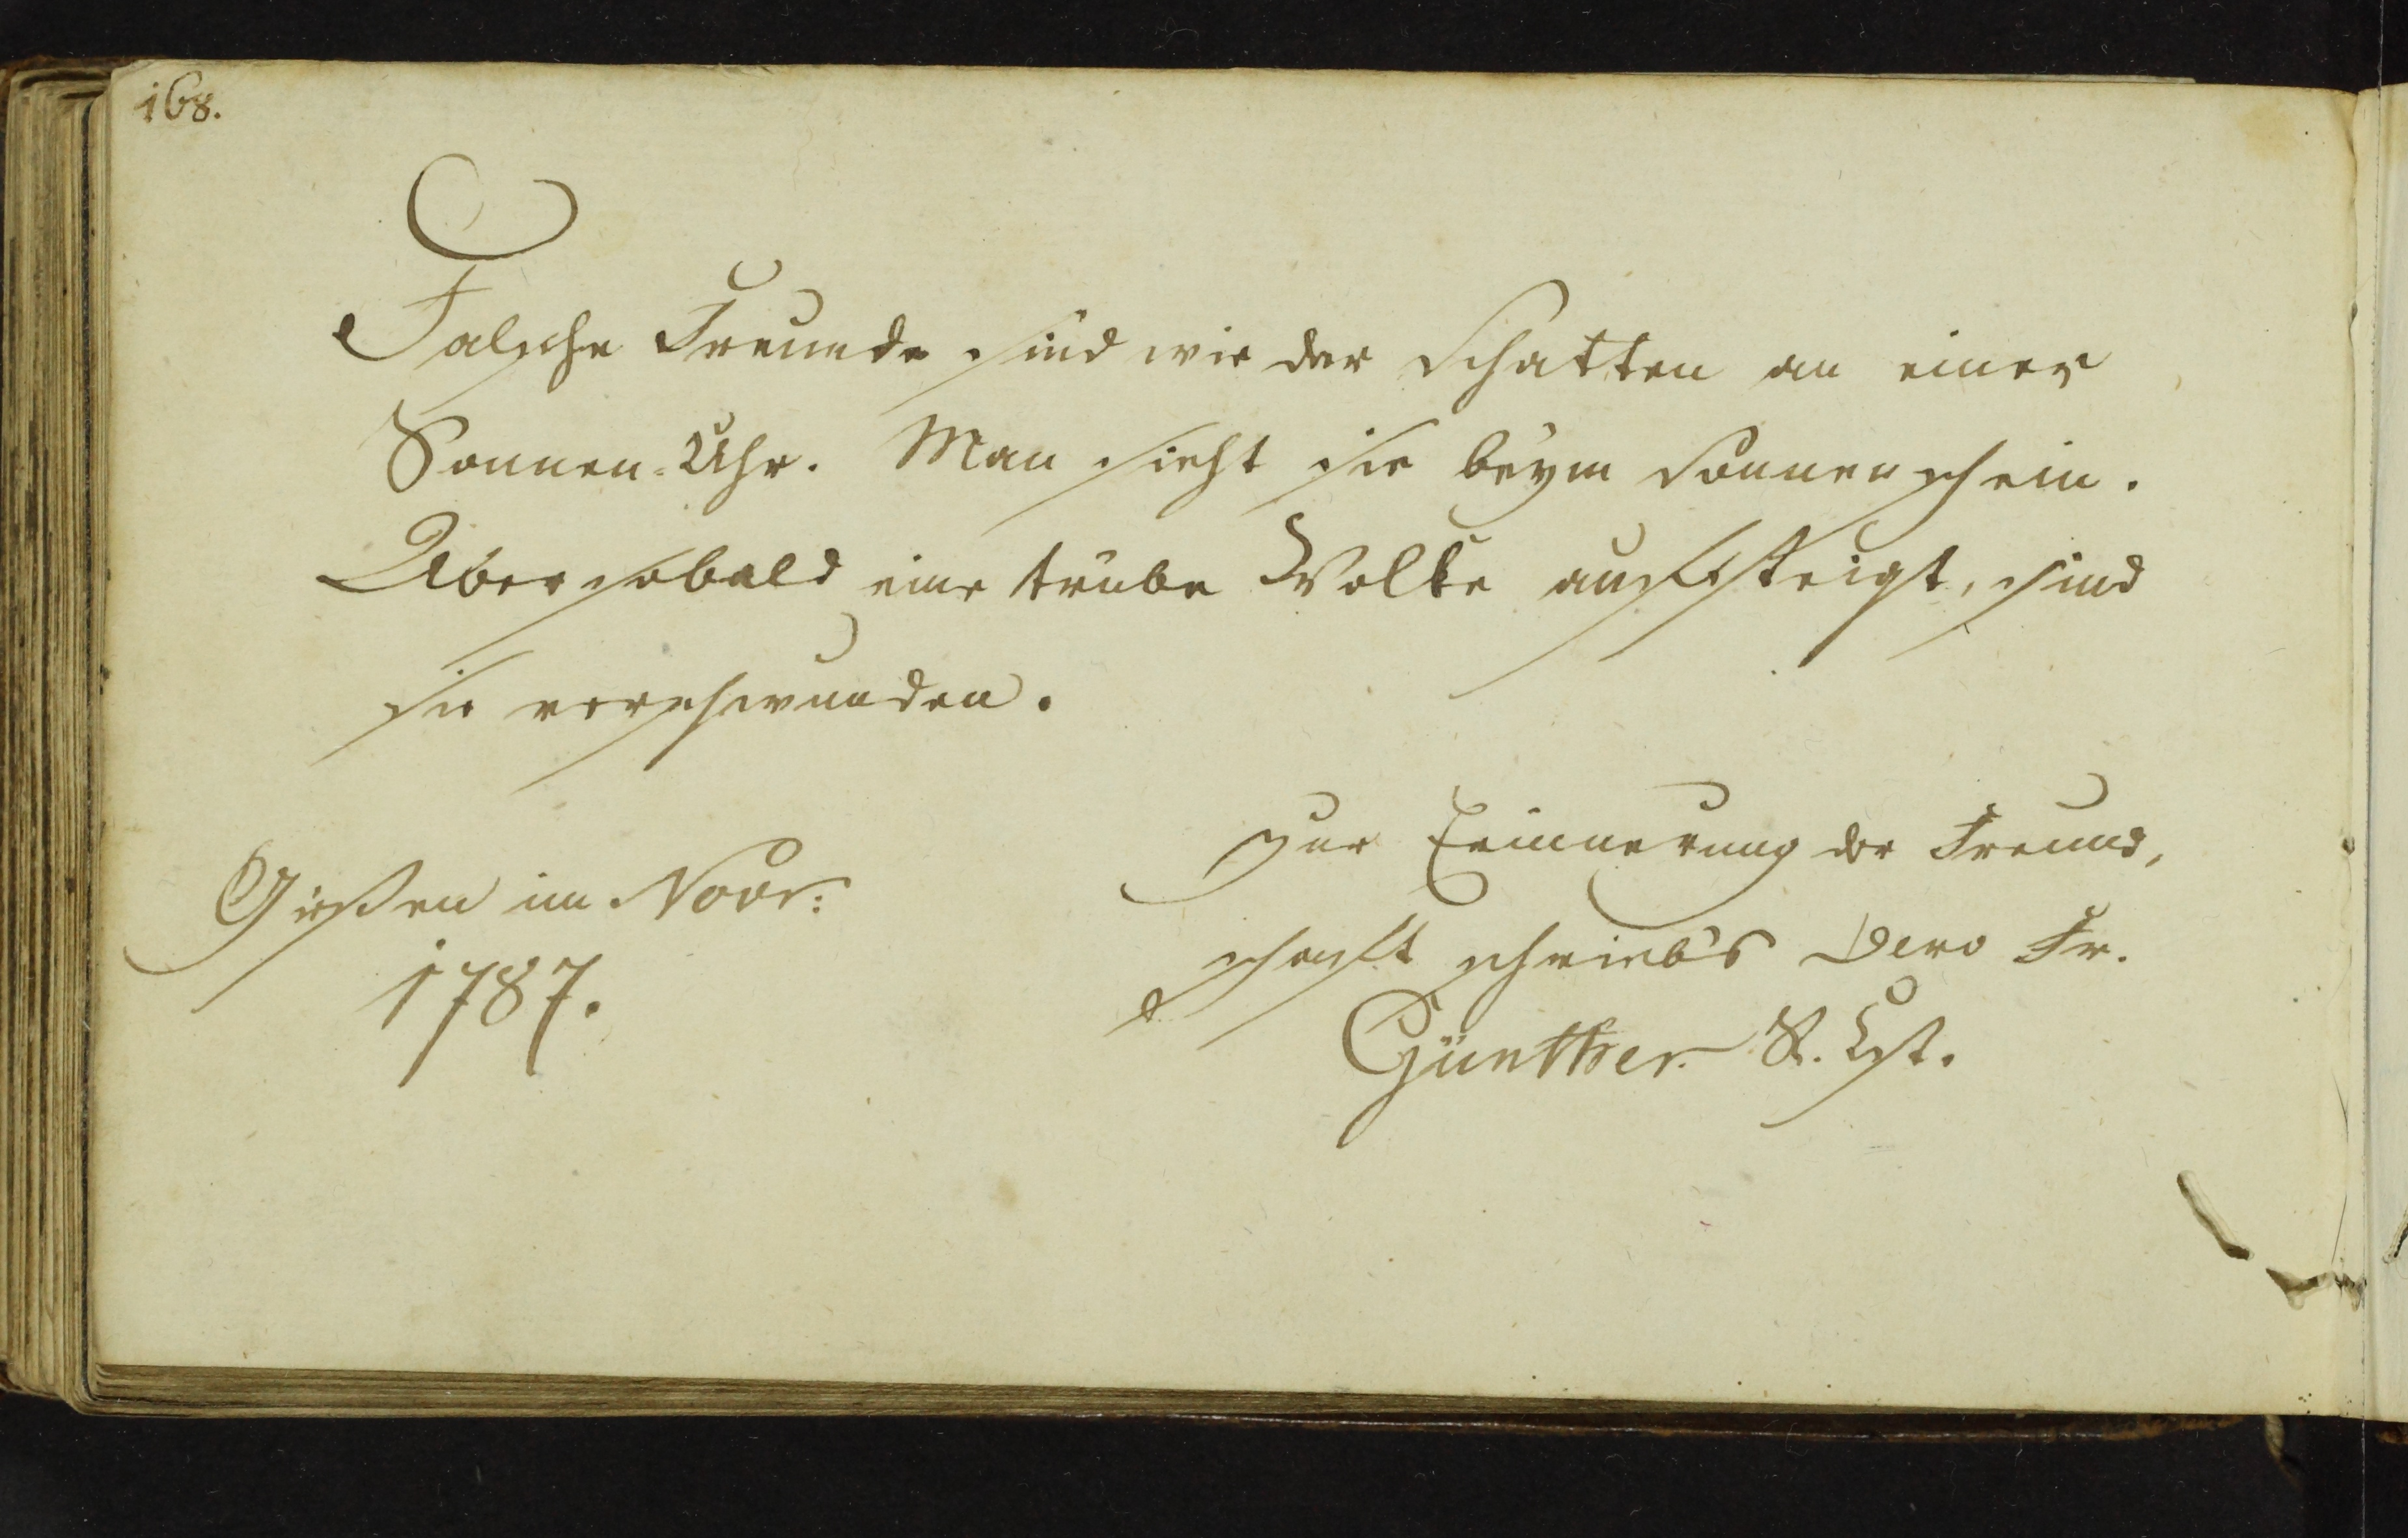 168.
Falsche Freunde sind wie der Schatten an einer
Sonnen-Uhr. Man sieht sie beym Sonnenschein.
Aber sobald eine trübe Wolke aufsteigt, sind
sie verschwunden.
Zur Erinnerung der Freund,
schaft schrieb's Dero Fr.
Günther
Gießen im Novr:
1787.